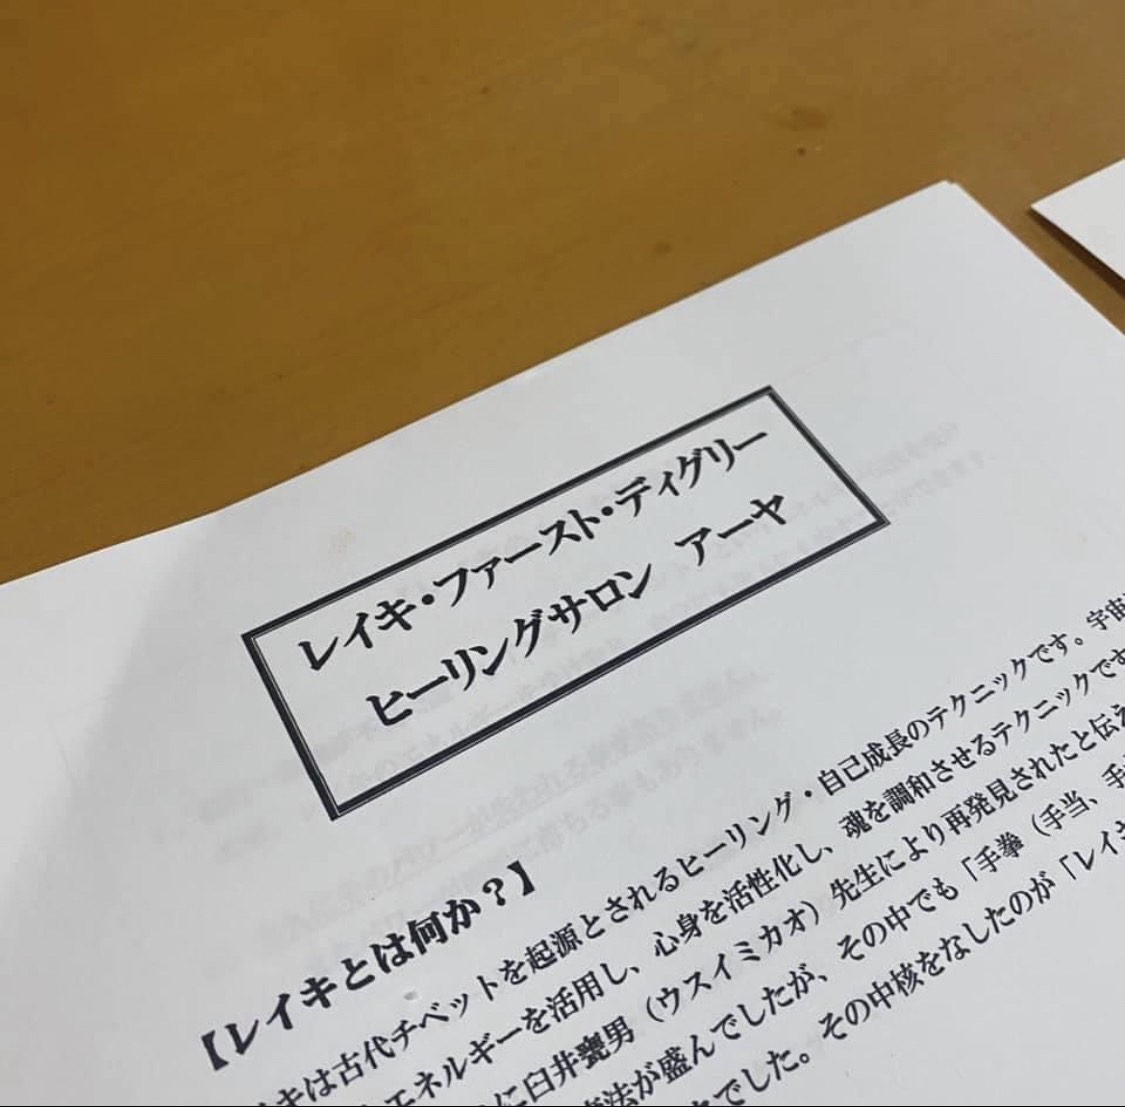 レイキ・ファースト・ディグリー
ヒーリングサロン アーヤ
【レイキとは何か?】
キは古代チベットを起源とされるヒーリング・自己成長のテクニックです。宇宙
エネルギーを活用し、心身を活性化し、魂を調和させるテクニックです
に臼井甕男(ウスイミカオ)先生により再発見されたと伝え
療法が盛んでしたが、その中でも「手拳(手当、手
でした。その中核をなしたのが「レイキ